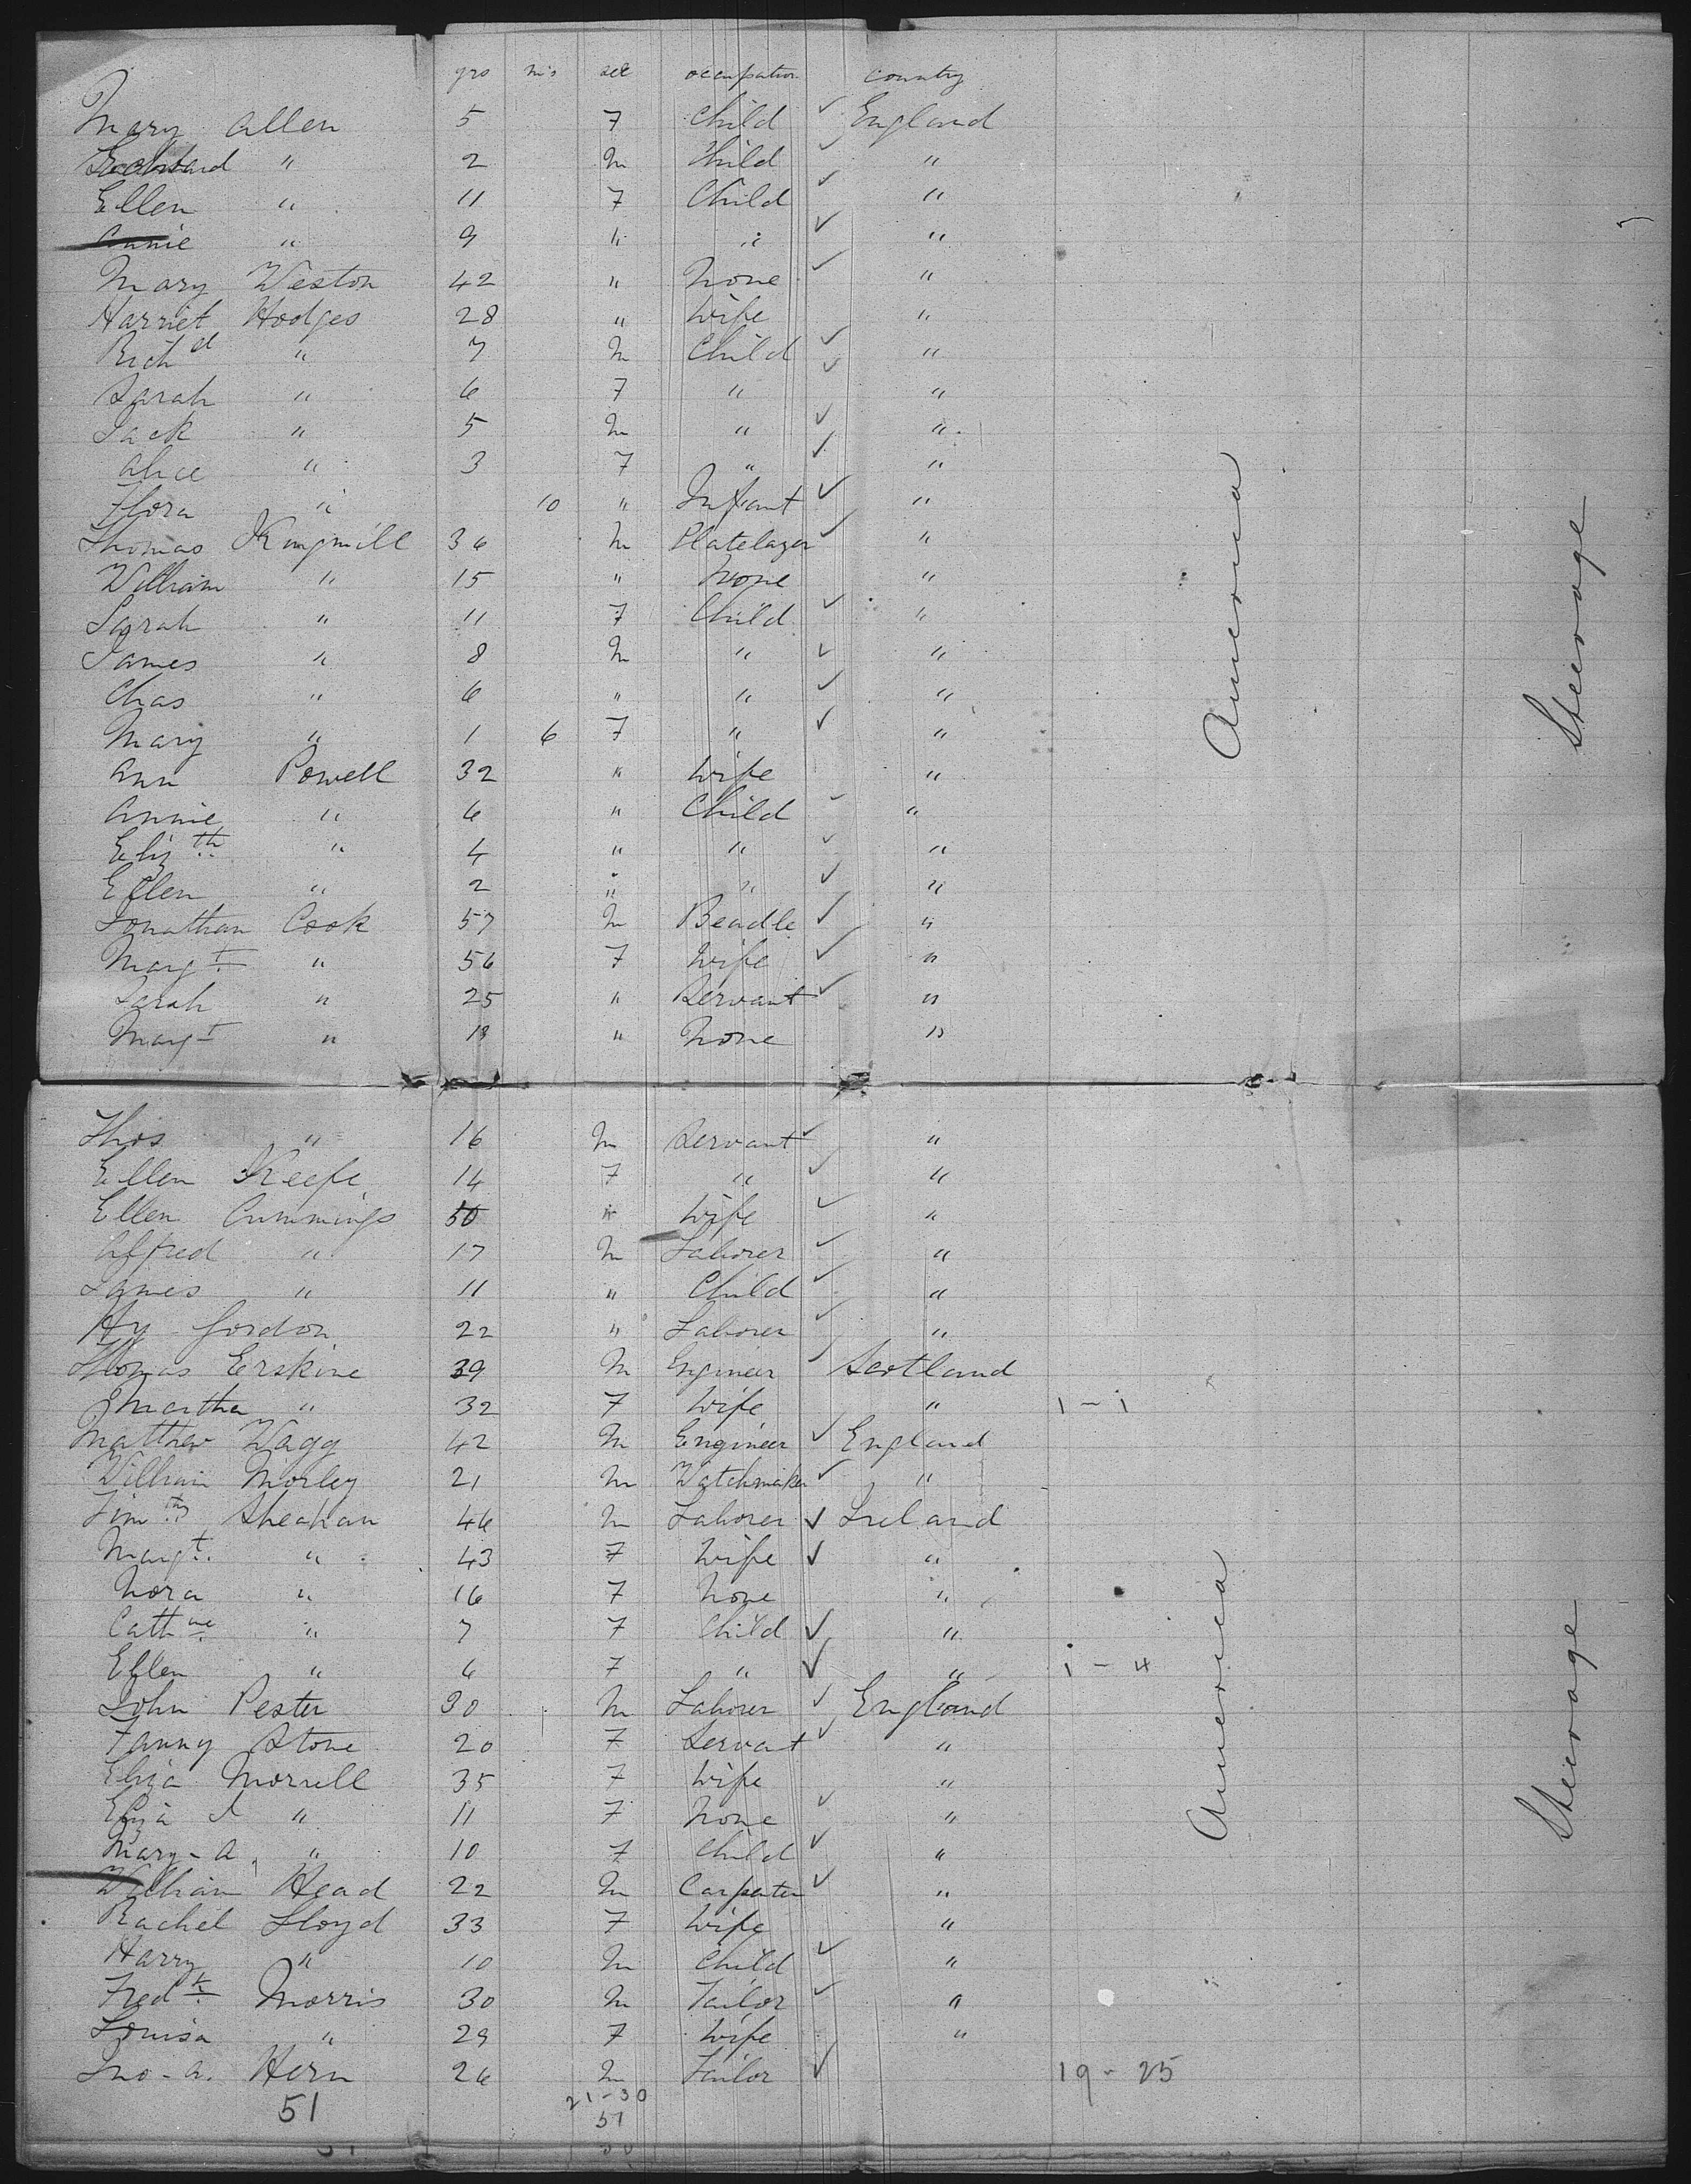 yrs ms sex occupation country
Mary Allen 5 F Child ✓ England
" 2 M Child ✓ "
Ellen " 11 F Child ✓ "
Annie " 9 " " ✓ "
Mary Weston 42 " None ✓ "
Harriet Hodges 28 " Wife "
Rich^d " 7 M Child ✓ "
Sarah " 6 F " ✓ "
Jack " 5 M " ✓ "
Alice " 3 F " ✓ "
Flora " 10 " Infant ✓ "
Thomas Kingmill 36 M Platelayer ✓ "
William " 15 " None "
Sarah " 11 F Child ✓ "
James " 8 M " ✓ "
Chas " 6 " " ✓ "
Mary " 1 6 F " ✓ "
Ann Powell 32 " Wife "
Annie " 6 " Child ✓ "
Eliz^th " 4 " " ✓ "
Ellen " 2 " " ✓ "
Jonathan Cook 57 M Beadle ✓ "
Marg^t " 56 F Wife ✓ "
Sarah " 25 " Servant ✓ "
Marg^t " 18 " None "
America
Steerage
Thos " 16 M Servant ✓ "
Ellen Keefe 14 F " ✓ "
Ellen Cummings 50 " Wife ✓ "
Alfred " 17 M Laborer ✓ "
James " 11 " Child ✓ "
Hy Gordon 22 " Laborer ✓ "
Thomas Erskine 39 M Engineer ✓ Scotland
Martha " 32 F Wife " 1-1
Matthew Wagg 42 M Engineer ✓ England
William Morley 21 M Watchmaker ✓ "
Tim^thy Sheahan 46 M Laborer ✓ Ireland
Marg^t " 43 F Wife ✓ "
Nora " 16 F None "
Cath^ne " 7 F Child ✓ "
Ellen " 6 F " ✓ " 1-4
John Pester 30 M Laborer ✓ England
Fanny Stone 20 F Servant ✓ "
Eliza Morrell 35 F Wife "
Eliza J " 11 F None ✓ "
Mary-A. " 10 F Child ✓ "
William Head 22 M Carpenter ✓ "
Rachel Lloyd 33 F Wife "
Harry " 10 M Child ✓ "
Fred^k Morris 30 M Tailor ✓ "
Louisa " 29 F Wife "
Jno-A. Hern 26 M Tailor ✓ 19-25
America
Steerage
51 21-30
51